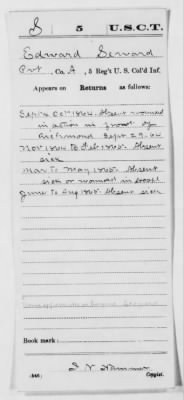 S 5 U.S.C.T.
Edward Seward
Pvt, Co. A, 5 Reg't U. S. Col'd Inf.
Appears on Returns as follows:
Sept to Oct 1864. Absent wounded
in action in front of
Richmond Sept 29. 64
Nov 1864 to Feb 1865. Absent
sick
Mar to May 1865. Absent
sick or wounded in
June to Aug 1865 Absent sick
Book mark:
(546)
Copyist.